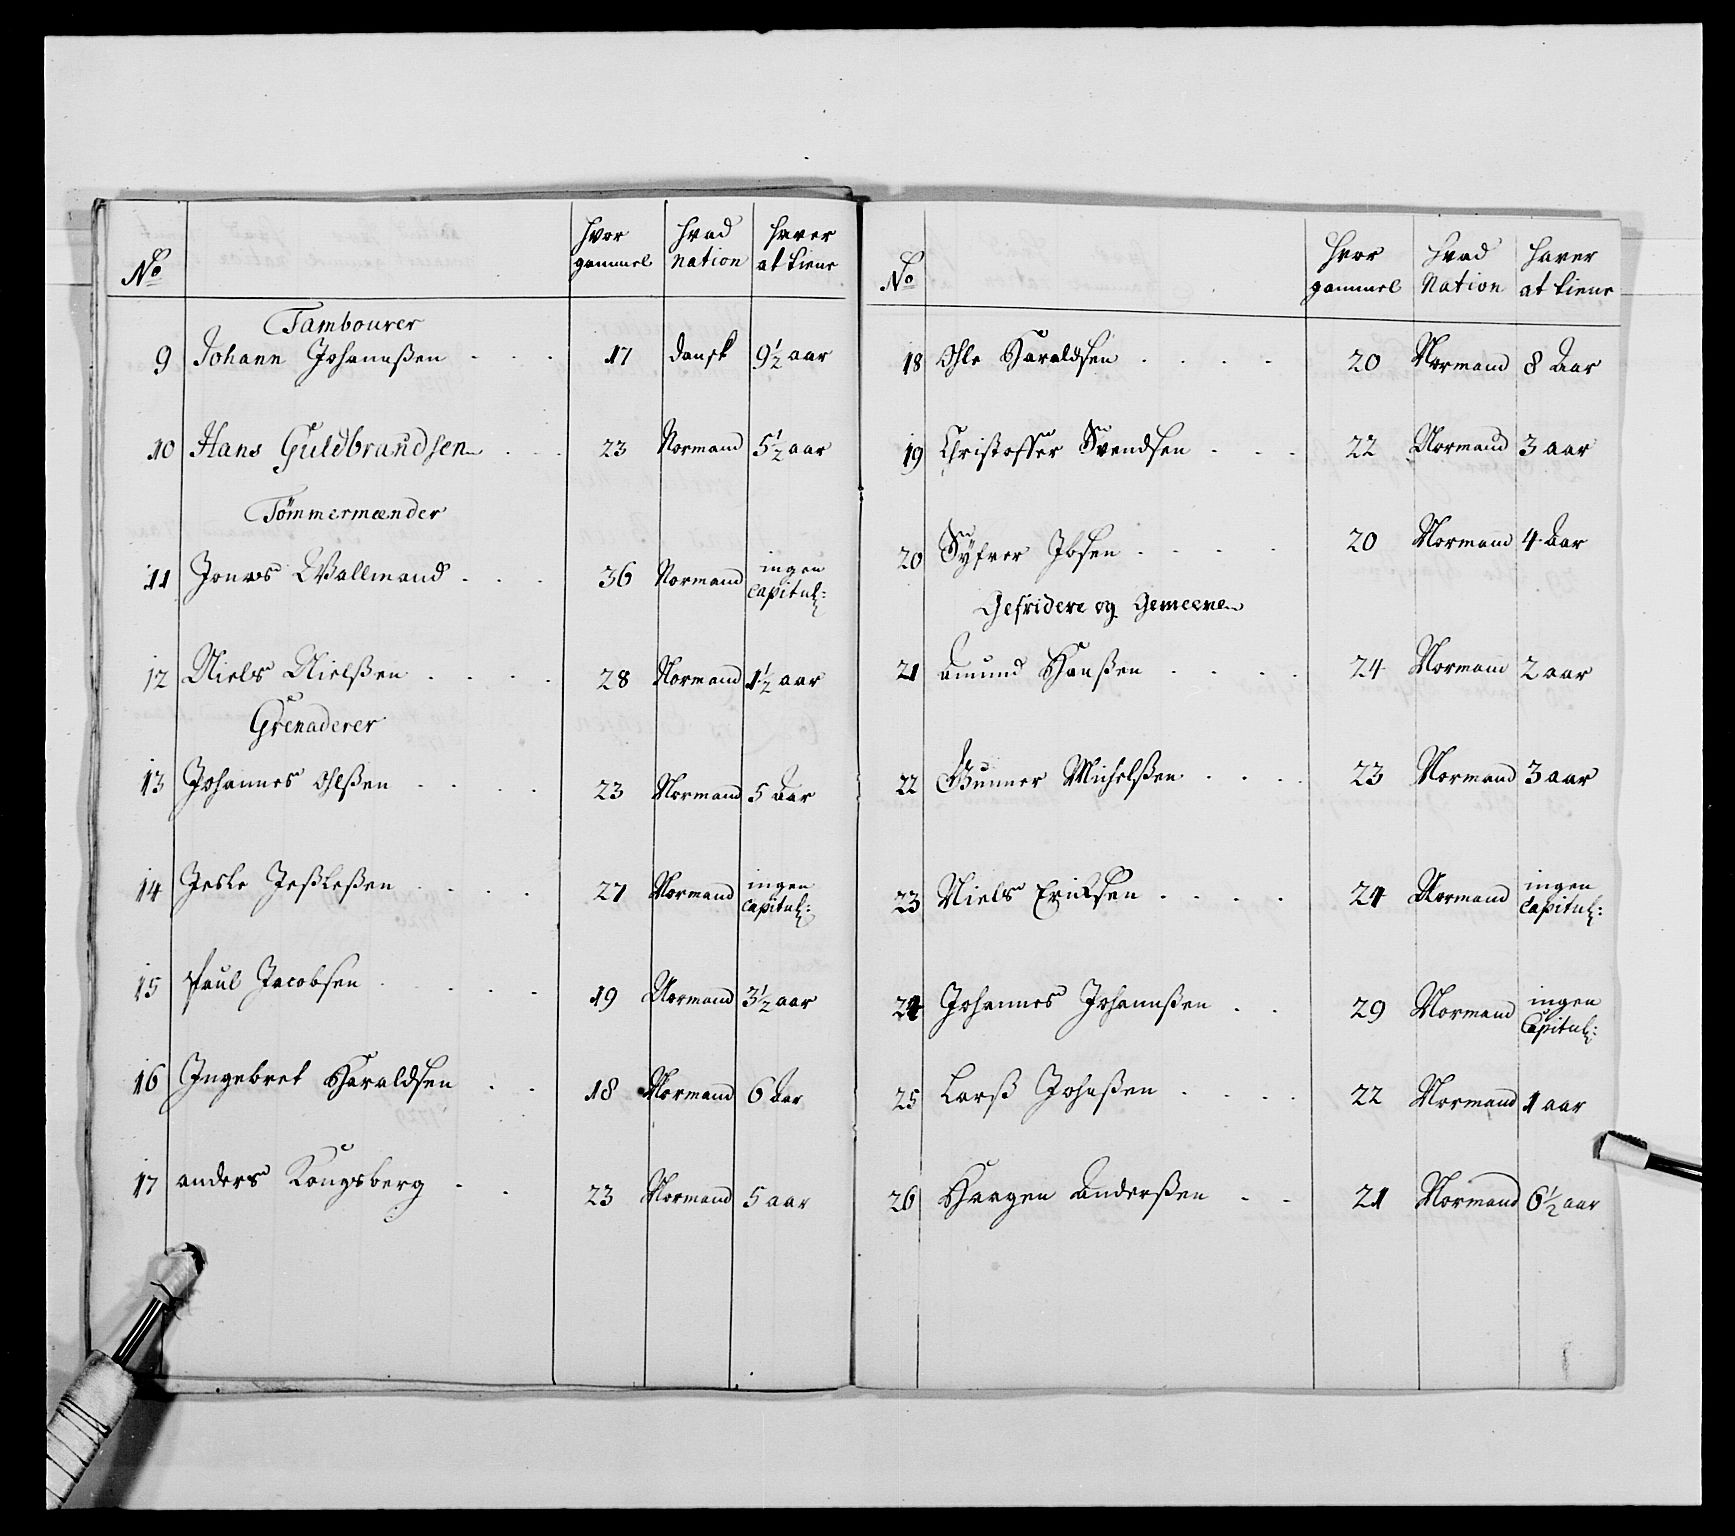 No hvor gammel hvad Nation haver at tiene
Tambourer
9 Johann Johannßen 17 dansk 9½ aar
10 Hans Guldbrandsen 23 Normand 5½ aar
Tømmermænder
11 Jonas Wallmand 36 Normand ingen Capitul:
12 Niels Nielßen 28 Normand 1½ aar
Grenaderer
13 Johannes Ohlßen 23 Normand 5 Aar
14 Jesle Jeßleßen 27 Normand ingen Capitul:
15 Paul Jacobsen 19 Normand 3½ aar
16 Ingebret Haraldsen 18 Normand 6 Aar
17 anders Kongsberg 23 Normand 5 aar
No hvor gammel hvad Nation haver at tiene
18 Ohle Haraldsen 20 Normand 8 Aar
19 Christoffer Svendsen 22 Normand 3 aar
20 Syfver Ibsen 20 Normand 4 Aar
Gefridere og Gemeene
21 Amund Hanßen 24 Normand 2 aar
22 Gunner Michelßen 23 Normand 3 aar
23 Niels Eriksen 24 Normand ingen Capitul:
24 Johannes Johannßen 29 Normand ingen Capitul:
25 Larß Johnßen 22 Normand 1 aar
26 Haagen Anderßen 21 Normand 6½ aar